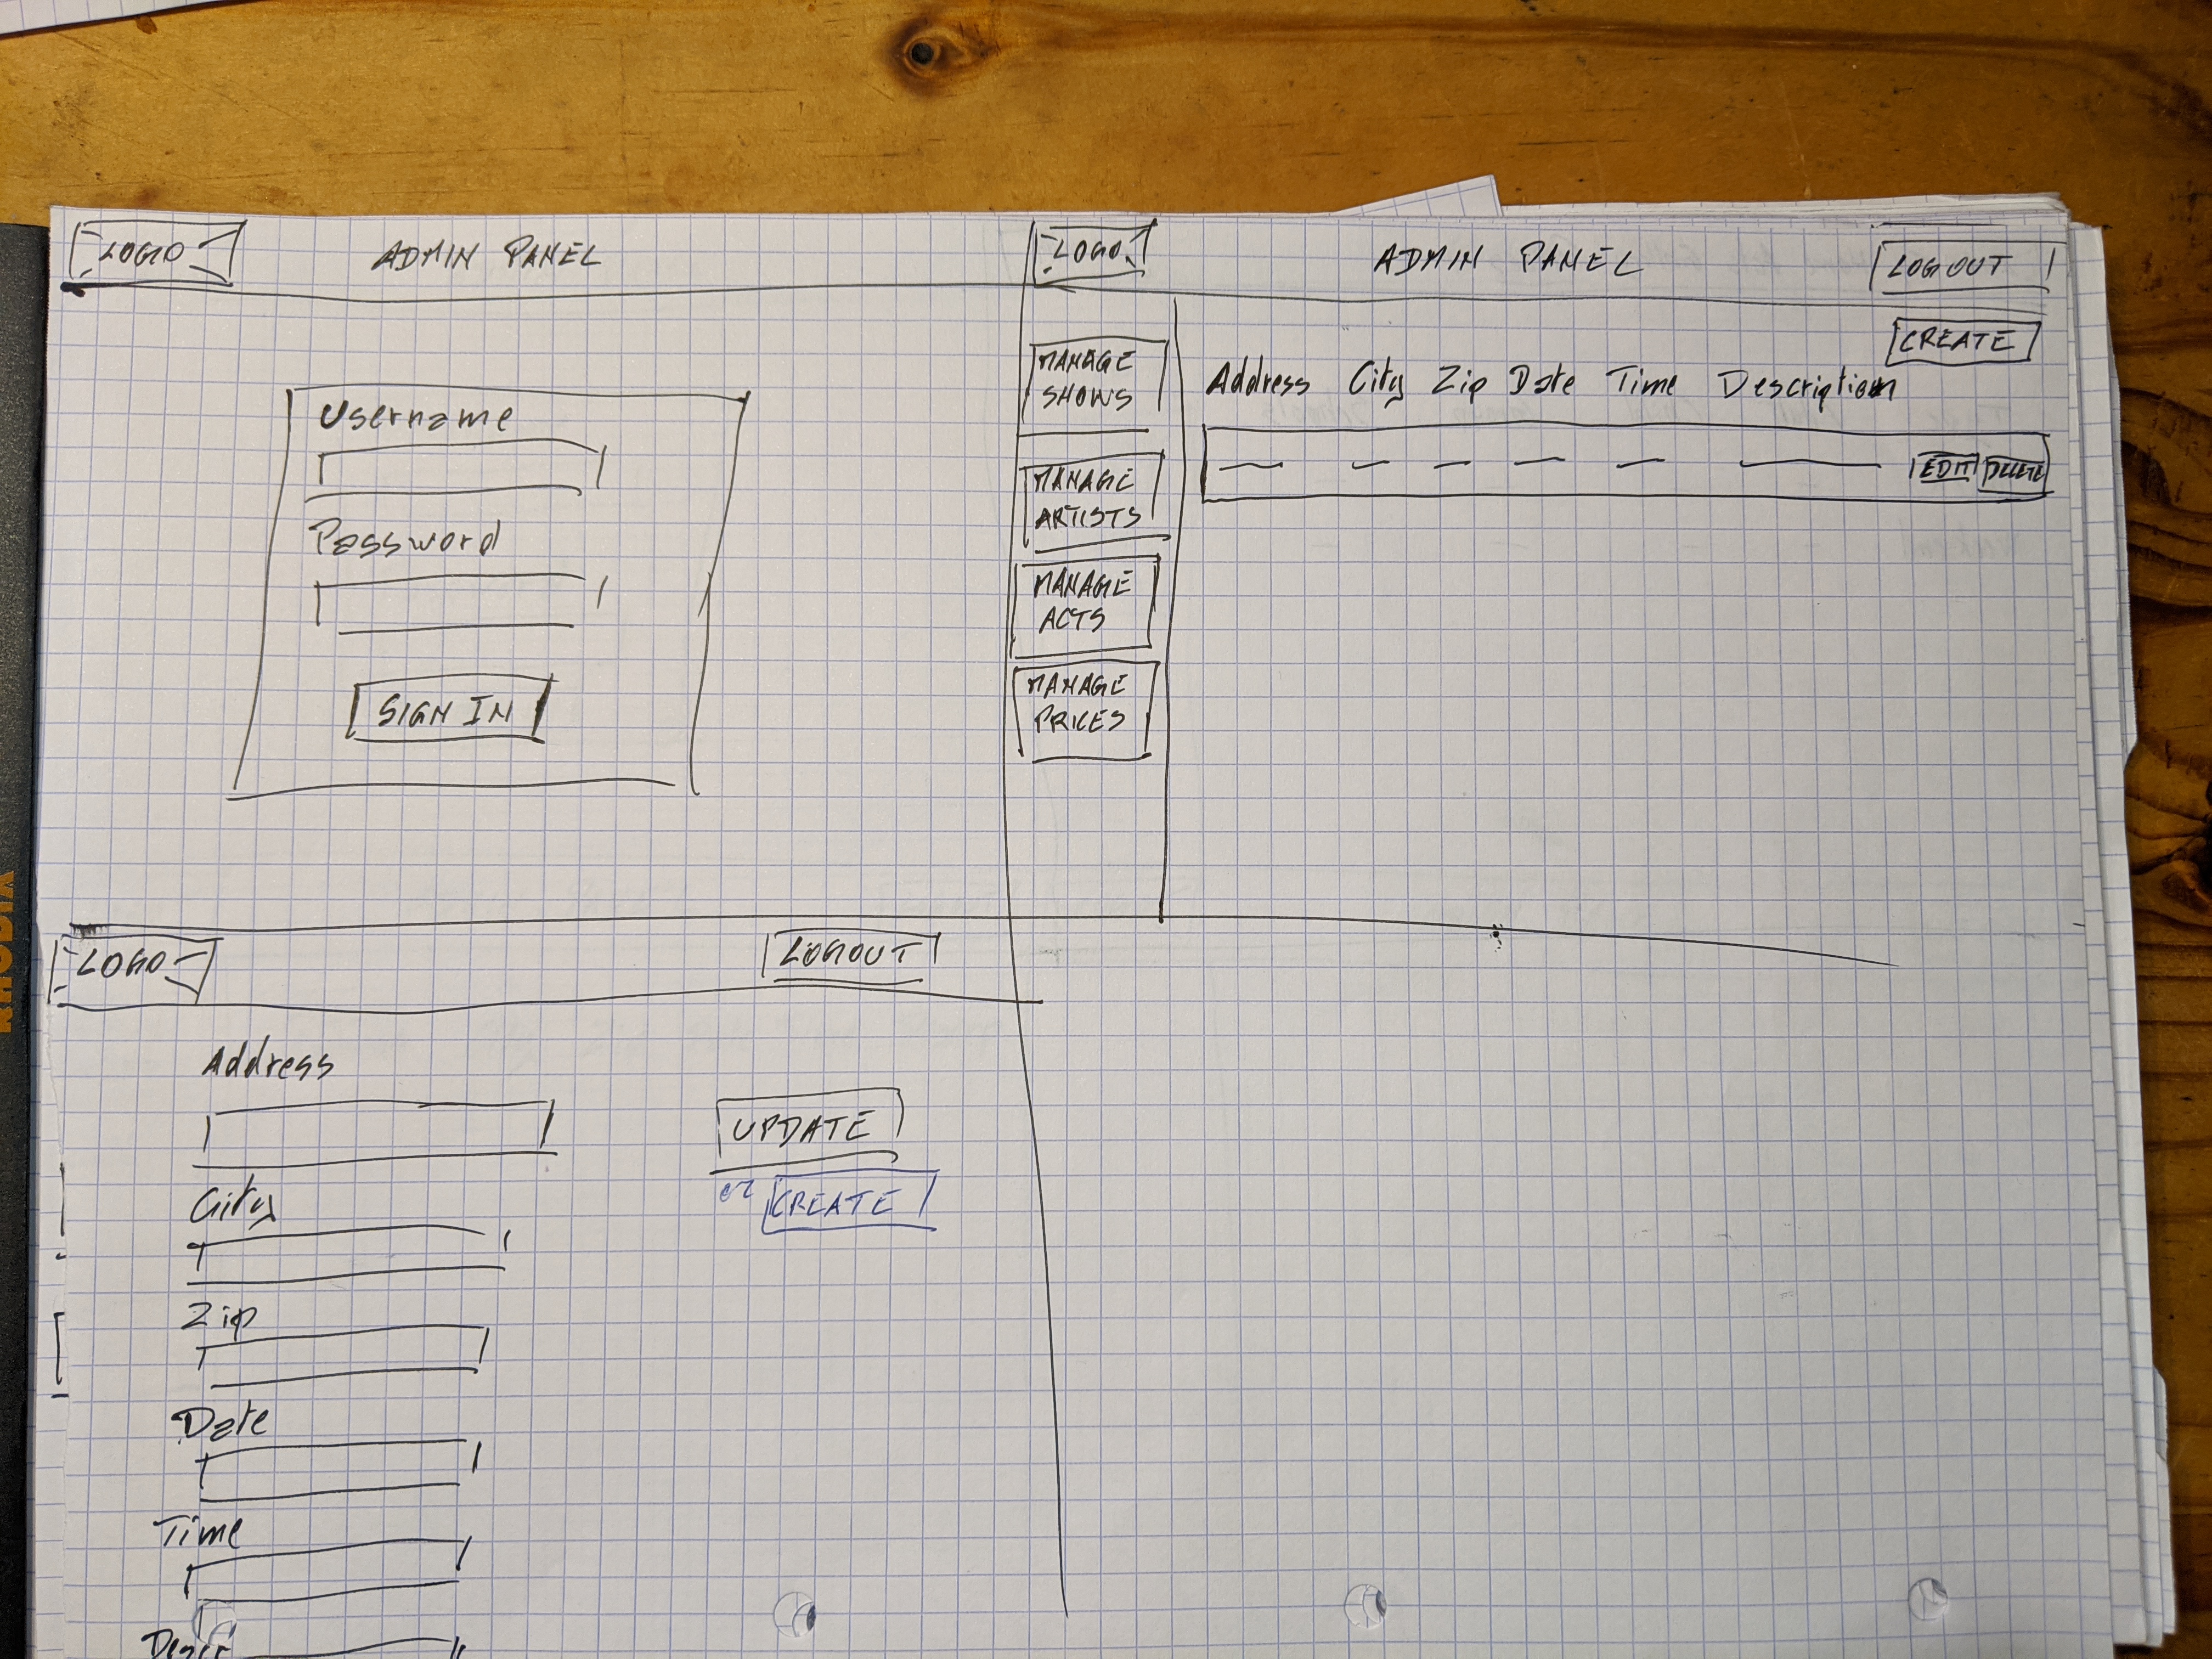 LOGO ADMIN PANEL
Username
Password
SIGN IN
LOGO ADMIN PANEL LOGOUT
CREATE
MANAGE
SHOWS
MANAGE
ARTISTS
MANAGE
ACTS
MANAGE
PRICES
Address City Zip Date Time Description
EDIT DELETE
LOGO LOGOUT
Address
UPDATE
or CREATE
City
Zip
Date
Time
Descr
RHODIA